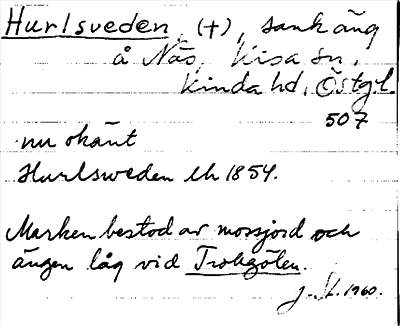 Hurlsveden, (†), sank äng
å Näs, Kisa sn,
Kinda hd, Östgl.
507
nu okänt
Hurlsweden lh 1854.
Marken bestod av mossjord och
ängen låg vid Trohgölen.
1960.